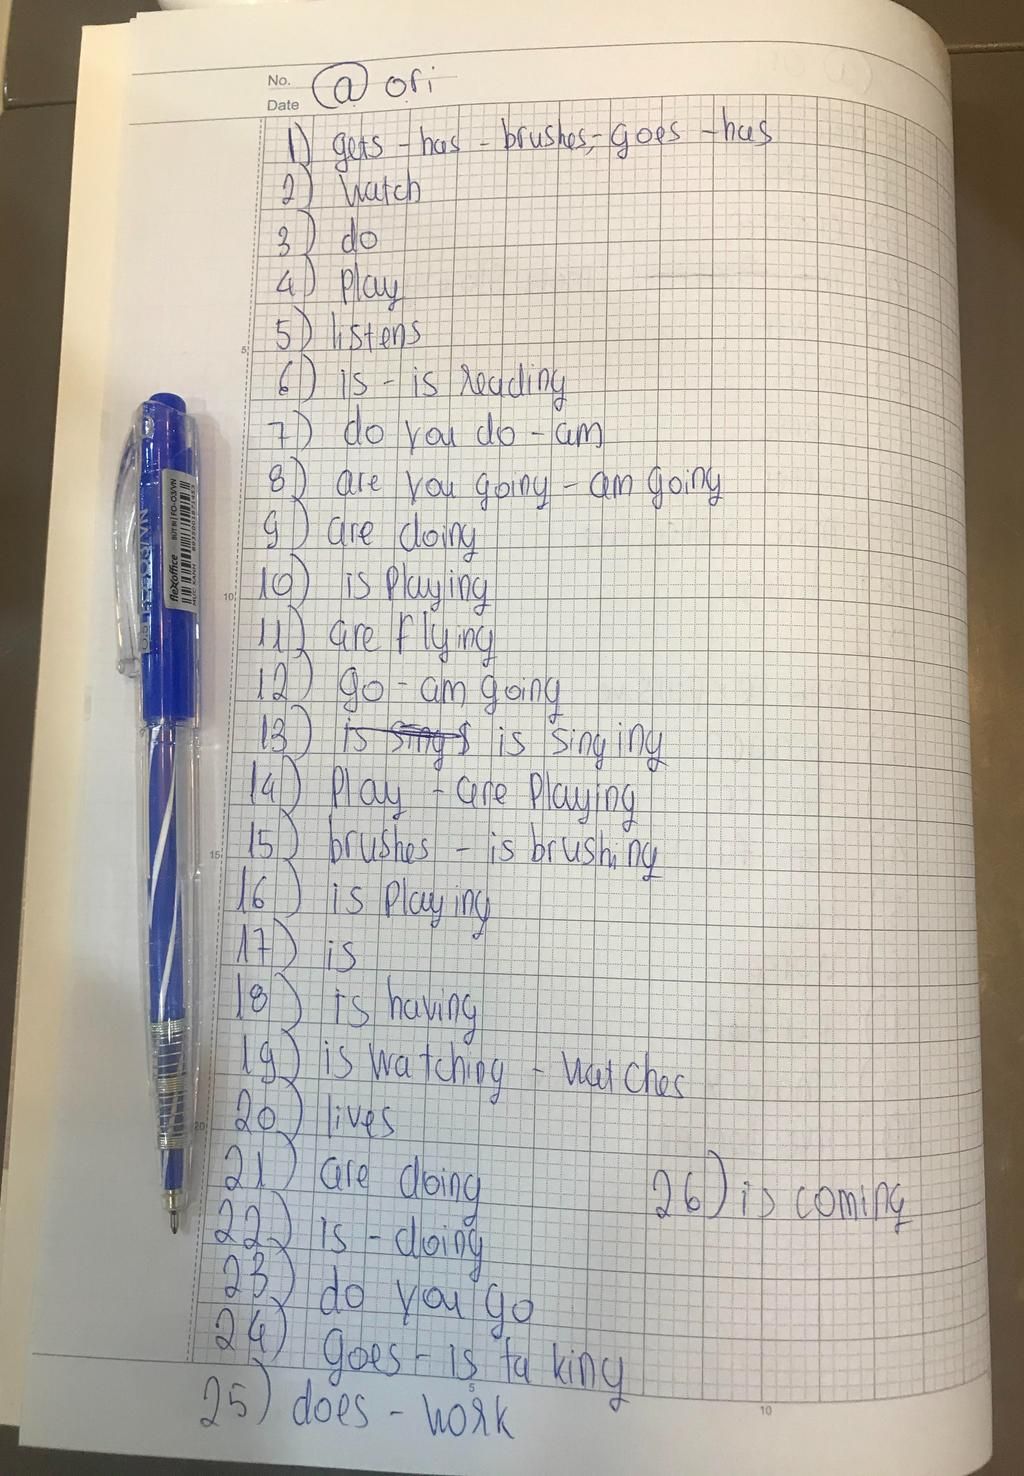 No.
Date
@ ori
1) gets - has - brushes, - goes - has
2) watch
3) do
4) play
5) listens
6) is - is reading
7) do you do - am
8) are you going - am going
9) are doing
10) is playing
11) are flying
12) go - am going
13) is sings is singing
14) play - are playing
15) brushes - is brushing
16) is playing
17) is
18) is having
19) is watching - watches
20) lives
21) are doing
26) is coming
22) is - doing
23) do you go
24) goes - is taking
25) does - work
5
10
15
20
5
10
flexoffice